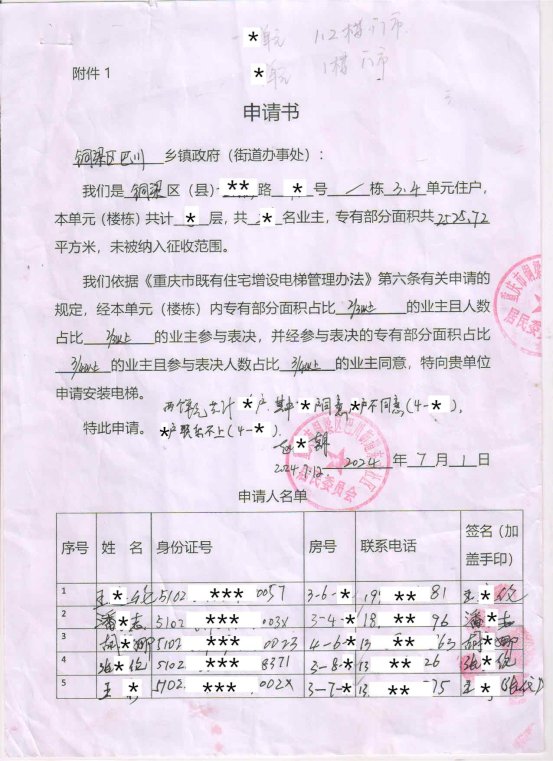 *单元 1.2楼门市
*单元 1楼门市
附件 1
申请书
铜梁区巴川 乡镇政府（街道办事处）：
我们是 铜梁 区（县） ** 路 * 号 / 栋 3.4 单元住户，
本单元（楼栋）共计 * 层，共 * 名业主，专有部分面积共 2525.72
平方米，未被纳入征收范围。
我们依据《重庆市既有住宅增设电梯管理办法》第六条有关申请的
规定，经本单元（楼栋）内专有部分面积占比 2/3以上 的业主且人数
占比 2/3以上 的业主参与表决，并经参与表决的专有部分面积占比
3/4以上 的业主且参与表决人数占比 3/4以上 的业主同意，特向贵单位
申请安装电梯。
两个单元共计 * 户，其中 * 户同意，*户不同意（4-*），
特此申请。 *户联系不上（4-*）。
2024.7.12 2024 年 7 月 1 日
居民委员会
申请人名单
序号 姓 名 身份证号 房号 联系电话 签名（加盖手印）
1 王*伦 5102 *** 0057 3-6-* 19 ** 81 王*伦
2 潘*志 5102 *** 003X 3-4-* 18 ** 96 潘*志
3 胡*娜 5102 *** 0023 4-6-* 13 ** 63 胡*娜
4 张*伦 5102 *** 8371 3-8-* 13 ** 26 张*伦
5 王* 5102 *** 002X 3-7-* 13 ** 75 王*